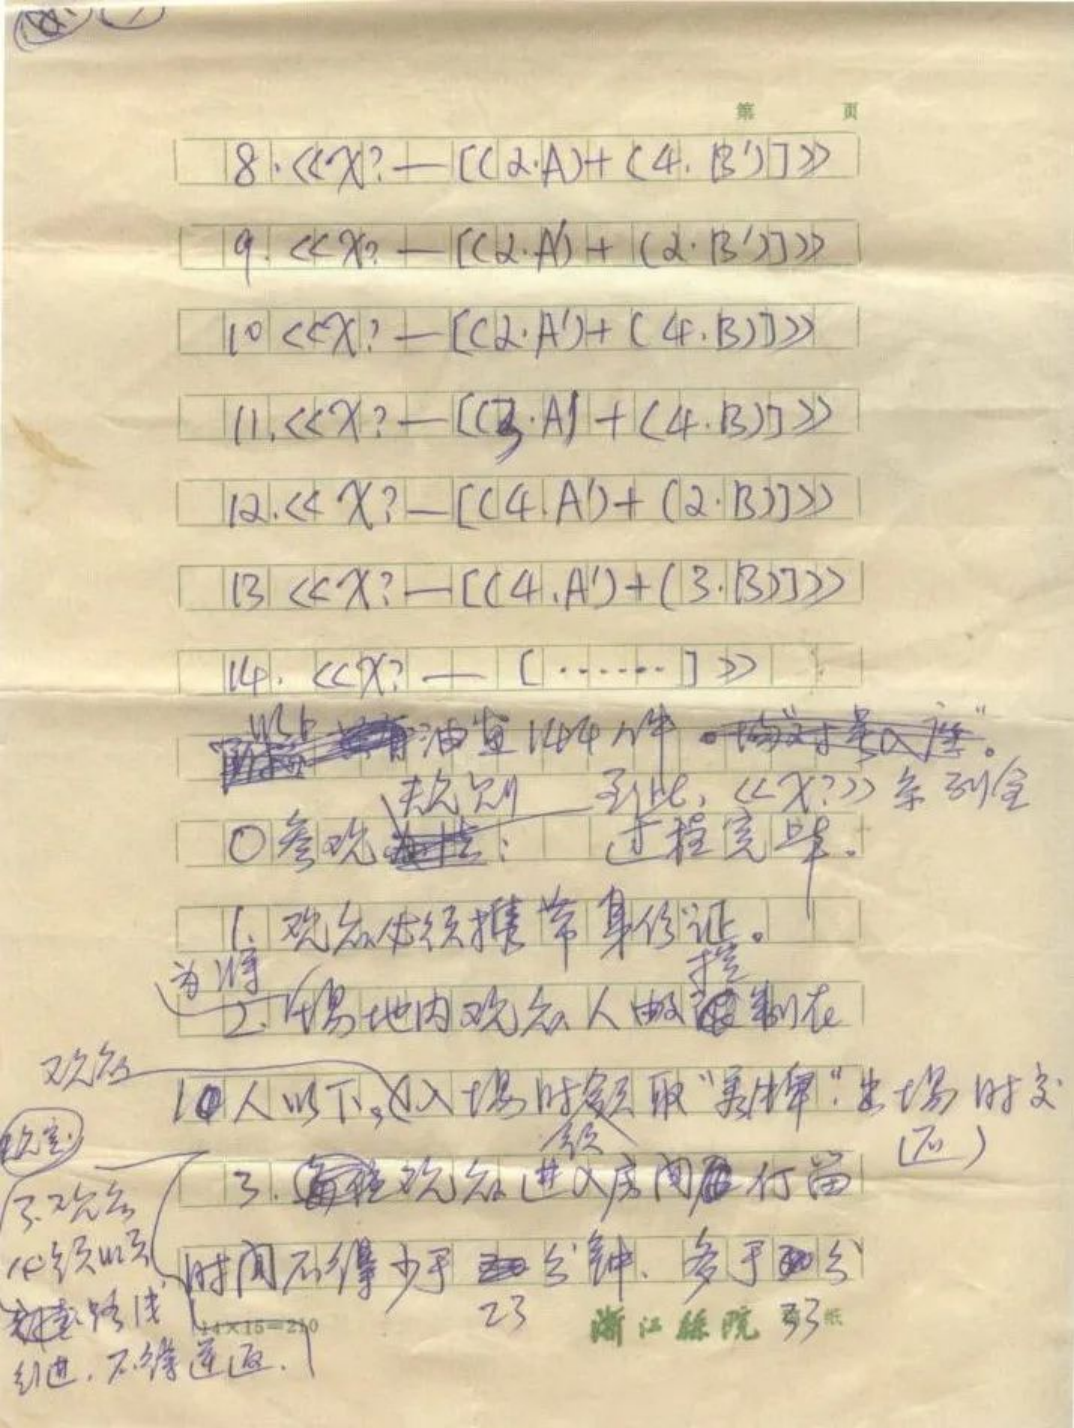 第 页
8.《X?—[(2.A)+(4.B')]》
9.《X?—[(2.A')+(2.B')]》
10《X?—[(2.A')+(4.B)]》
11.《X?—[(3.A)+(4.B)]》
12.《X?—[(4.A')+(2.B)]》
13《X?—[(4.A')+(3.B)]》
14.《X?—[……]》
以上
油画144件
规则 到此,《X?》系列全
0参观: 过程完毕。
1.观众必须携带身份证。
为将 控
2.场地内观众人 制在
观众
10人以下。入场时领取"号牌".出场时交
领 (还)
3.观众进入房间 行留
3.观众
必须以
时间不得少于 分钟、多于 分
路线
23 33
14×15=210
浙江丝院 纸
行进.不得逆返.